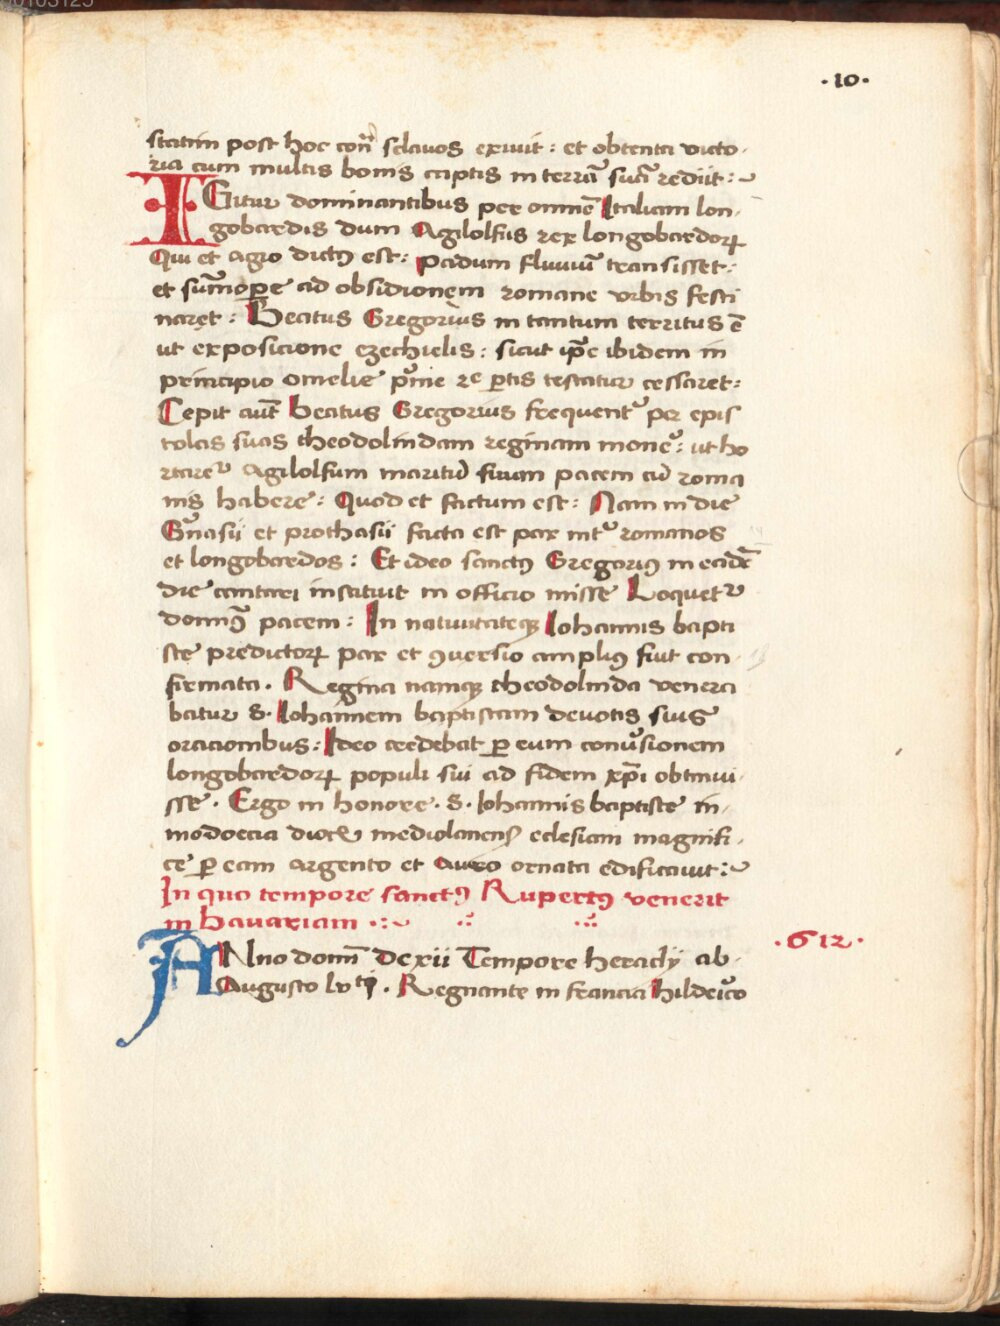 ·10·
statim post hoc con̄ sclauos exiuit : et obtenta victo
ria cum multis bonis captis in terrā suā rediit :~
IGitur dominantibus per omnē Italiam lon
gobardis dum Agilolfus rex longobardoꝝ
Qui et agio dictꝰ est : padum fluuiū transisset :
et sūmoꝑe ad obsidionem romane vrbis festi
naret : Beatus Gregorius in tantum territus ē
ut exposicione ezechielis : sicut ip̄e ibidem in
principio omelie p̄me 2e ꝑtis testatur cessaret :
Cepit aūt beatus Gregorius frequent᷑ per epis
tolas suas theodolindam reginam mone᷑ : ut ho
rtare᷑ Agilolfum maritū suum pacem cū roma
nis habere : Quod et factum est : Nam in die
G̑nasii et prothasii facta est pax int᷑ romanos
et longobardos : Et ideo sanctꝰ Gregoriꝰ in eadē
die cantari instituit in officio misse Loquet᷑
domīꝰ pacem : In natiuitateqꝫ Iohannis bapti
ste predictoꝝ pax et ꝯuersio ampliꝰ fuit con
firmata . Regina namqꝫ theodolinda venera
batur S. Iohannem baptistam deuotis suis
oracionibus : Ideo credebat ꝑ eum conu᷑sionem
longobardoꝝ populi sui ad fidem xp̄i obtinui
sse . Ergo in honore . S . Iohannis baptiste in
modoecia dioc᷑ mediolanenẜ eclesiam magnifi
ce ꝑ eam argento et Auro ornata edificauit :~
In quo tempore sanctꝰ Rupertꝰ venerit
in bauariam
·612·
ANno domī Dcxii Tempore heraclij ab
Augusto lvti . Regnante in francia hildeic᷑o